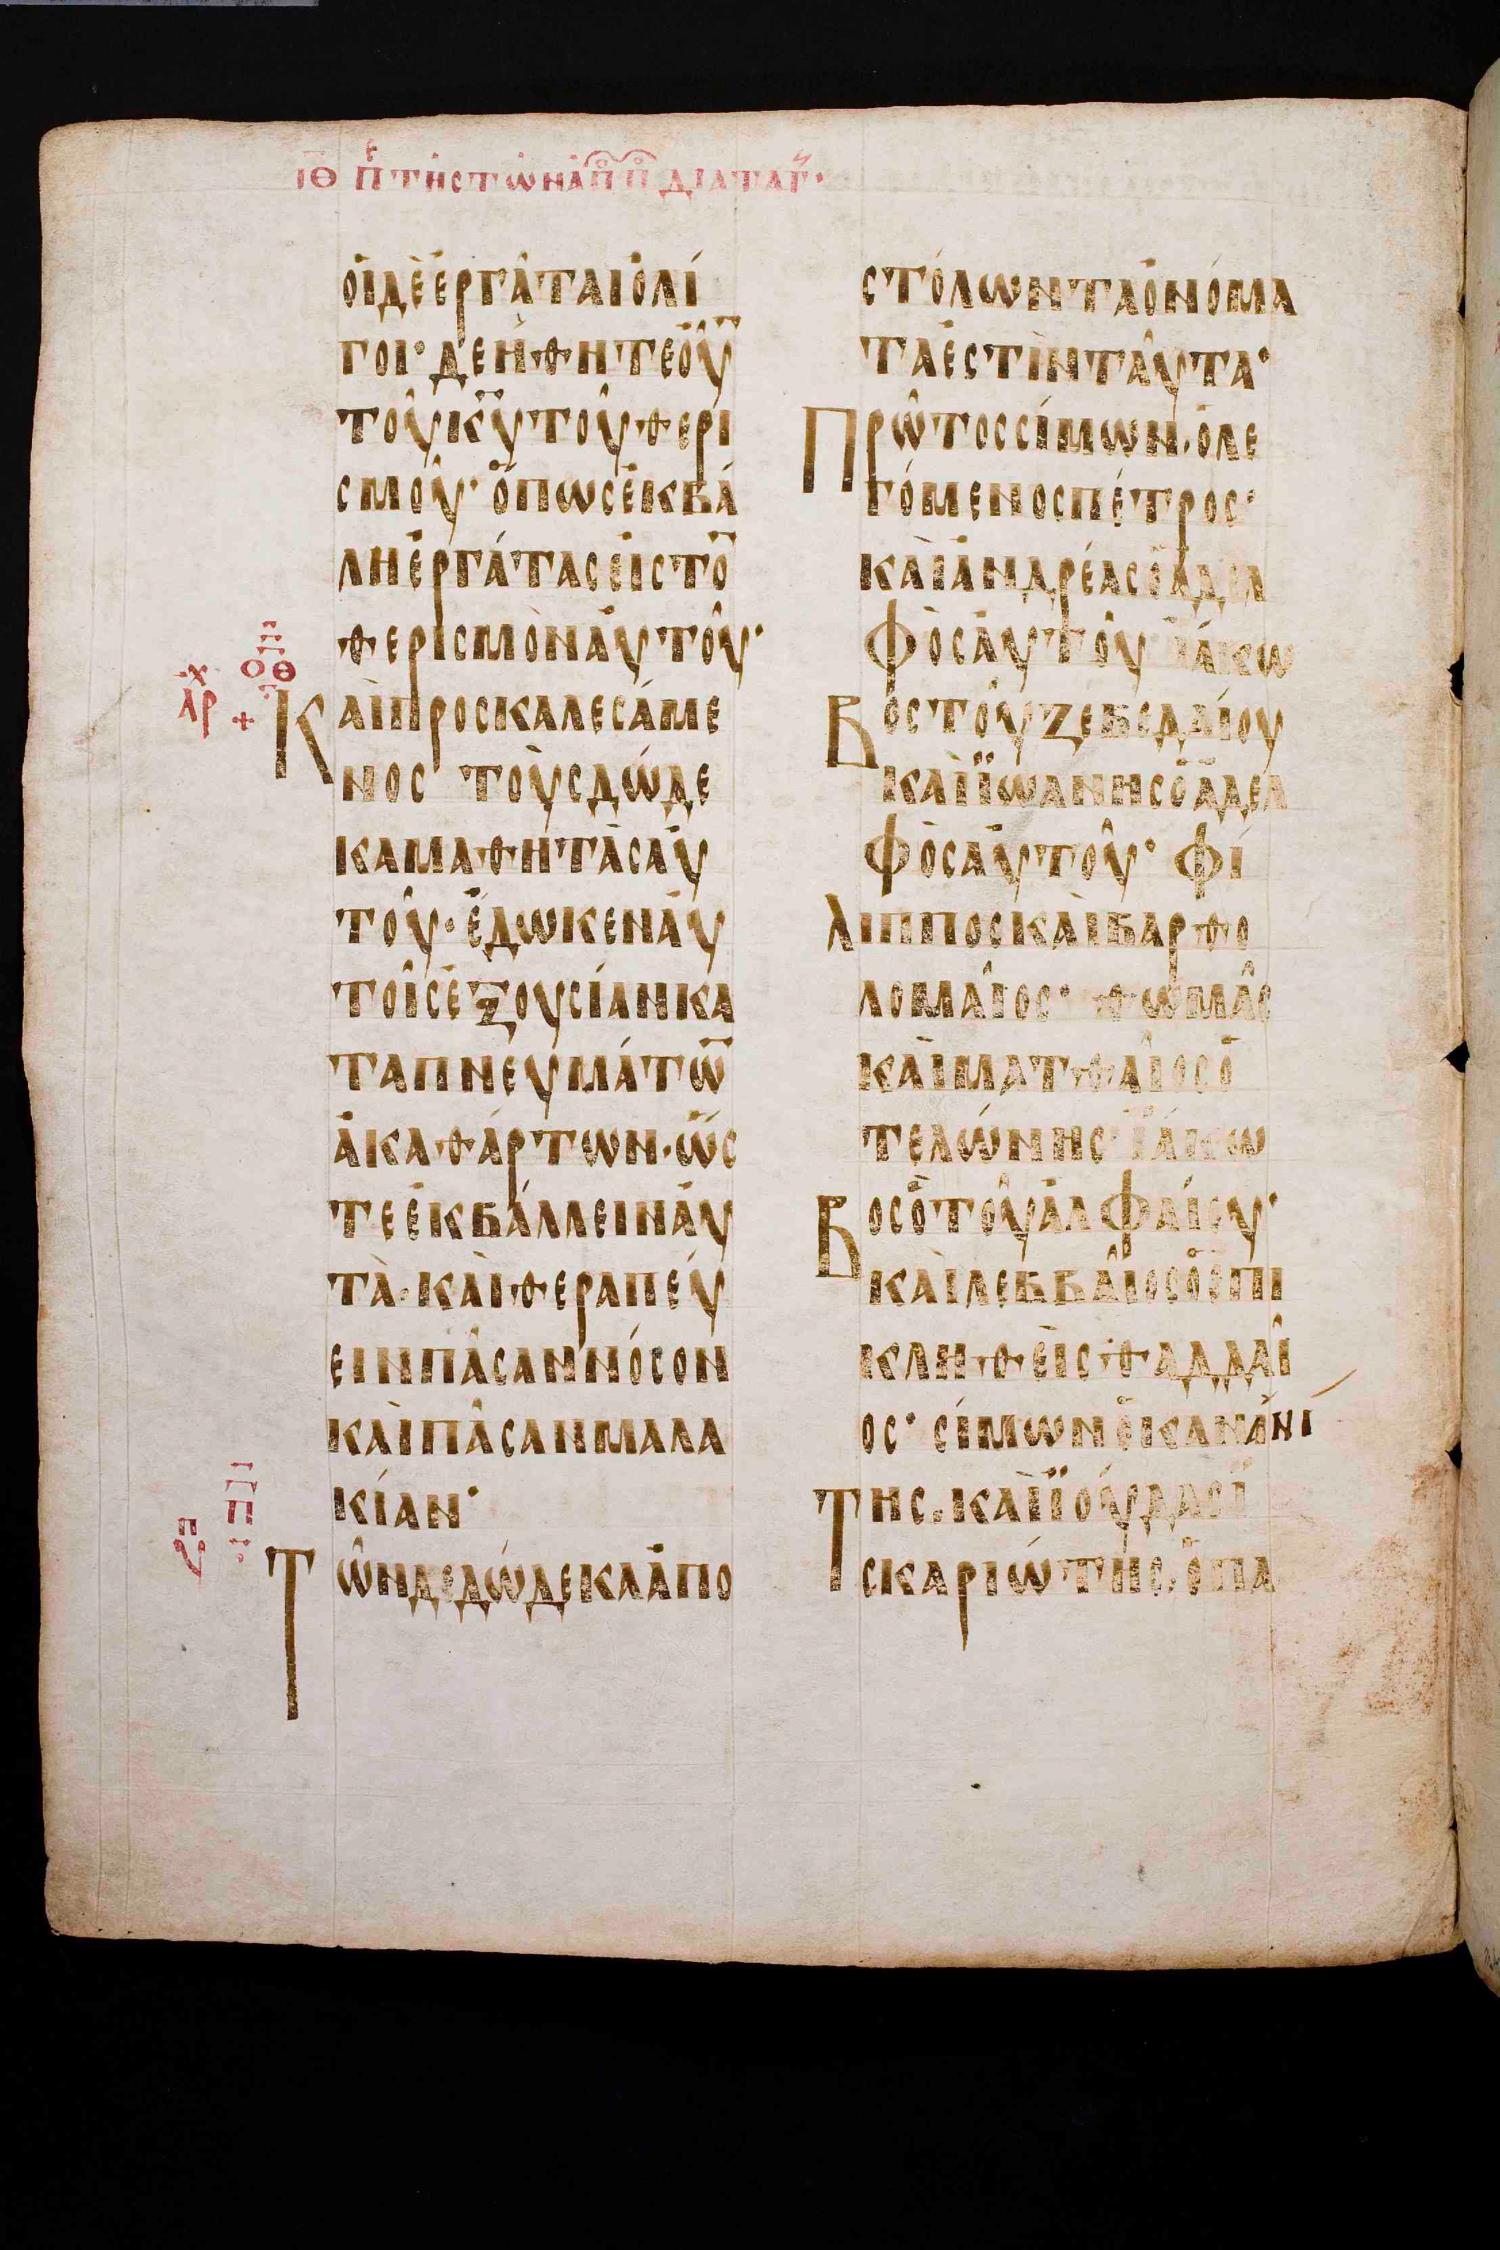 ΙΘ Π̅ε ΤΗϹΤΩΝΑΠΠ ΔΙΑΤΑΓ·
ΟΙΔΕΕΡΓΑΤΑΙΟΛΙ
ΓΟΙ· ΔΕΗΘΗΤΕΟΥ̅
ΤΟΥΚ̅Υ̅ΤΟΥΘΕΡΙ
ϹΜΟΥ· ΟΠΩϹΕΚΒΑ
ΛΗΕΡΓΑΤΑϹΕΙϹΤΟ̅
ΘΕΡΙϹΜΟΝΑΥΤΟΥ·
ΑΡΧ + ΟΘ
ΚΑΙΠΡΟϹΚΑΛΕϹΑΜΕ
ΝΟϹ ΤΟΥϹΔΩΔΕ
ΚΑΜΑΘΗΤΑϹΑΥ
ΤΟΥ· ΕΔΩΚΕΝΑΥ
ΤΟΙϹΕΞΟΥϹΙΑΝΚΑ
ΤΑΠΝΕΥΜΑΤΩ̅
ΑΚΑΘΑΡΤΩΝ· ΩϹ
ΤΕΕΚΒΑΛΛΕΙΝΑΥ
ΤΑ· ΚΑΙΘΕΡΑΠΕΥ
ΕΙΝΠΑϹΑΝΝΟϹΟΝ
ΚΑΙΠΑϹΑΝΜΑΛΑ
ΚΙΑΝ·
Π
ΤΩΝΔΕΔΩΔΕΚΑΑΠΟ
ϹΤΟΛΩΝΤΑΟΝΟΜΑ
ΤΑΕϹΤΙΝΤΑΥΤΑ·
ΠΡΩΤΟϹϹΙΜΩΝ· ΟΛΕ
ΓΟΜΕΝΟϹΠΕΤΡΟϹ·
ΚΑΙΑΝΔΡΕΑϹΟΑΔΕΛ
ΦΟϹΑΥΤΟΥ ΙΑΚΩ
ΒΟϹΤΟΥΖΕΒΕΔΑΙΟΥ
ΚΑΙΪΩΑΝΗϹΟΑΔΕΛ
ΦΟϹΑΥΤΟΥ· ΦΙ
ΛΙΠΠΟϹΚΑΙΒΑΡΘΟ
ΛΟΜΑΙΟϹ· ΘΩΜΑϹ
ΚΑΙΜΑΤΘΑΙΟϹΟ
ΤΕΛΩΝΗϹ· ΙΑΚΩ
ΒΟϹΟΤΟΥΑΛΦΑΙΟΥ·
ΚΑΙΛΕΒΒΑΙΟϹΟΕΠΙ
ΚΛΗΘΕΙϹΘΑΔΔΑΙ
ΟϹ· ϹΙΜΩΝΟΚΑΝΑΝΙ
ΤΗϹ. ΚΑΙΪΟΥΔΑϹΙ
ϹΚΑΡΙΩΤΗϹ, ΟΠΑ